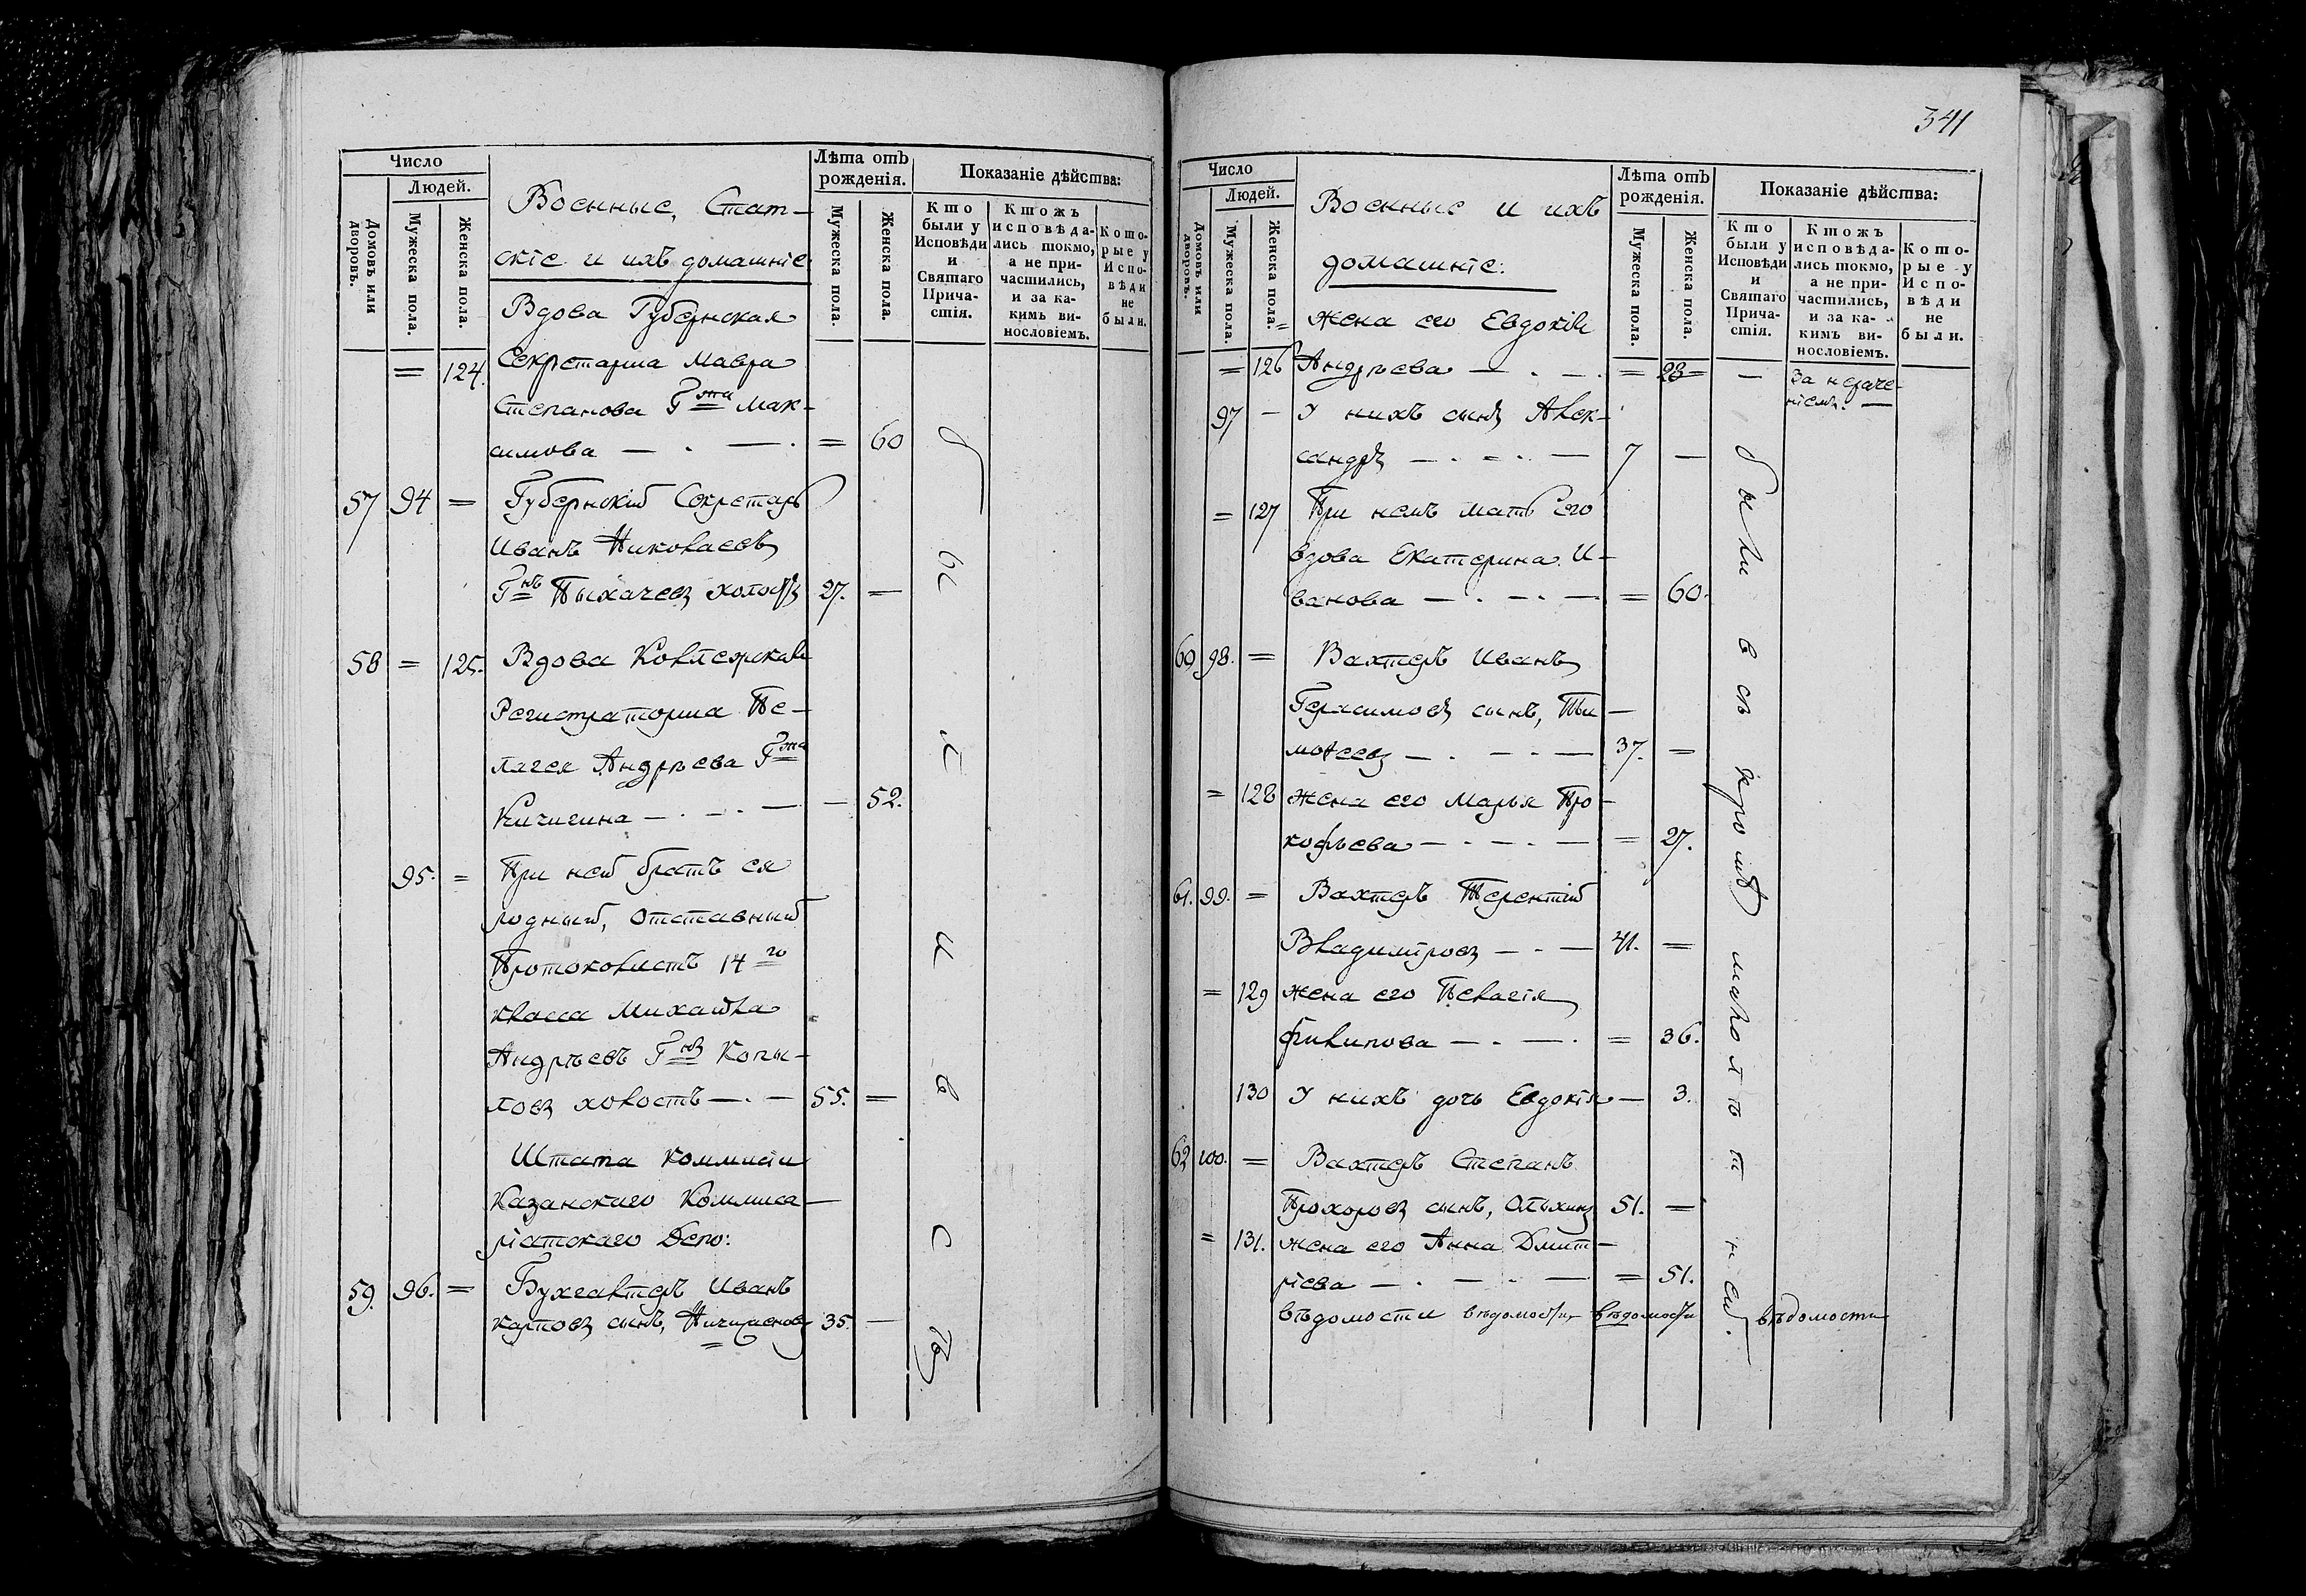 341
Число
Людей.
Домовъ или дворовъ.
Мужеска пола.
Женска пола.
Военные, Стат-
скіе и ихъ домашніе
Лѣта отъ рожденія.
Мужеска пола.
Женска пола.
Показаніе дѣйства:
Кто были у Исповѣди и Святаго Прича-стія.
Ктожъ исповѣда-лись токмо, а не при-частились, и за ка-кимъ ви-нословіемъ.
Кото-рые у Испо-вѣди не были.
Вдова Губернская
= 124. Секретарша Мавра
Степанова Гжа Мак-
симова — . — . = 60
57 94 = Губернскій Секретарь
Иванъ Николаевъ
Гнъ Пыхачевъ холостъ 27. —
58 = 125. Вдова Коллежская
Регистраторша Пе-
лагея Андрѣева Гжа
Кичигина — . — . — — 52.
95. = При ней братъ ея
родный, отставный
Протоколистъ 14го
класса Михайла
Андрѣевъ Гнъ Копы-
ловъ холостъ — . — 55. =
Штата Коммисіи
Казанскаго Коммиса-
ріатскаго Депо:
59. 96. = Бухгалтеръ Иванъ
Карповъ сынъ, 35. —
б ы л и в с
Число
Людей.
Домовъ или дворовъ.
Мужеска пола.
Женска пола.
Военные и ихъ
домашніе:
Лѣта отъ рожденія.
Мужеска пола.
Женска пола.
Показаніе дѣйства:
Кто были у Исповѣди и Святаго Прича-стія.
Ктожъ исповѣда-лись токмо, а не при-частились, и за ка-кимъ ви-нословіемъ.
Кото-рые у Испо-вѣди не были.
Жена его Евдокія
= 126 Андрѣева — . — = 28 = — За нераче-
ніемъ. —
97 — У нихъ сынъ Алек-
сандръ — . = . — 7 —
= 127 При немъ мать его
вдова Екатерина И-
ванова — . — . — = 60.
60 98. = Вахтеръ Иванъ
Герасимовъ сынъ, Ти-
моѳеевъ — . — . — 37. =
= 128 Жена его Марья Про-
кофьева — . — . — = 27.
61. 99. = Вахтеръ Терентій
Владиміровъ — . — 41. =
= 129 Жена его Пелагія
Филипова — . — . = 36.
130 У нихъ дочь Евдокія — 3.
62 100. = Вахтеръ Степанъ
Прохоровъ сынъ, 51. =
= 131. Жена его Анна Дмит-
ріева — . — . — = 51.
вѣдомости вѣдомости вѣдомости вѣдомости
были всѣ кромѣ малолѣтн ей.